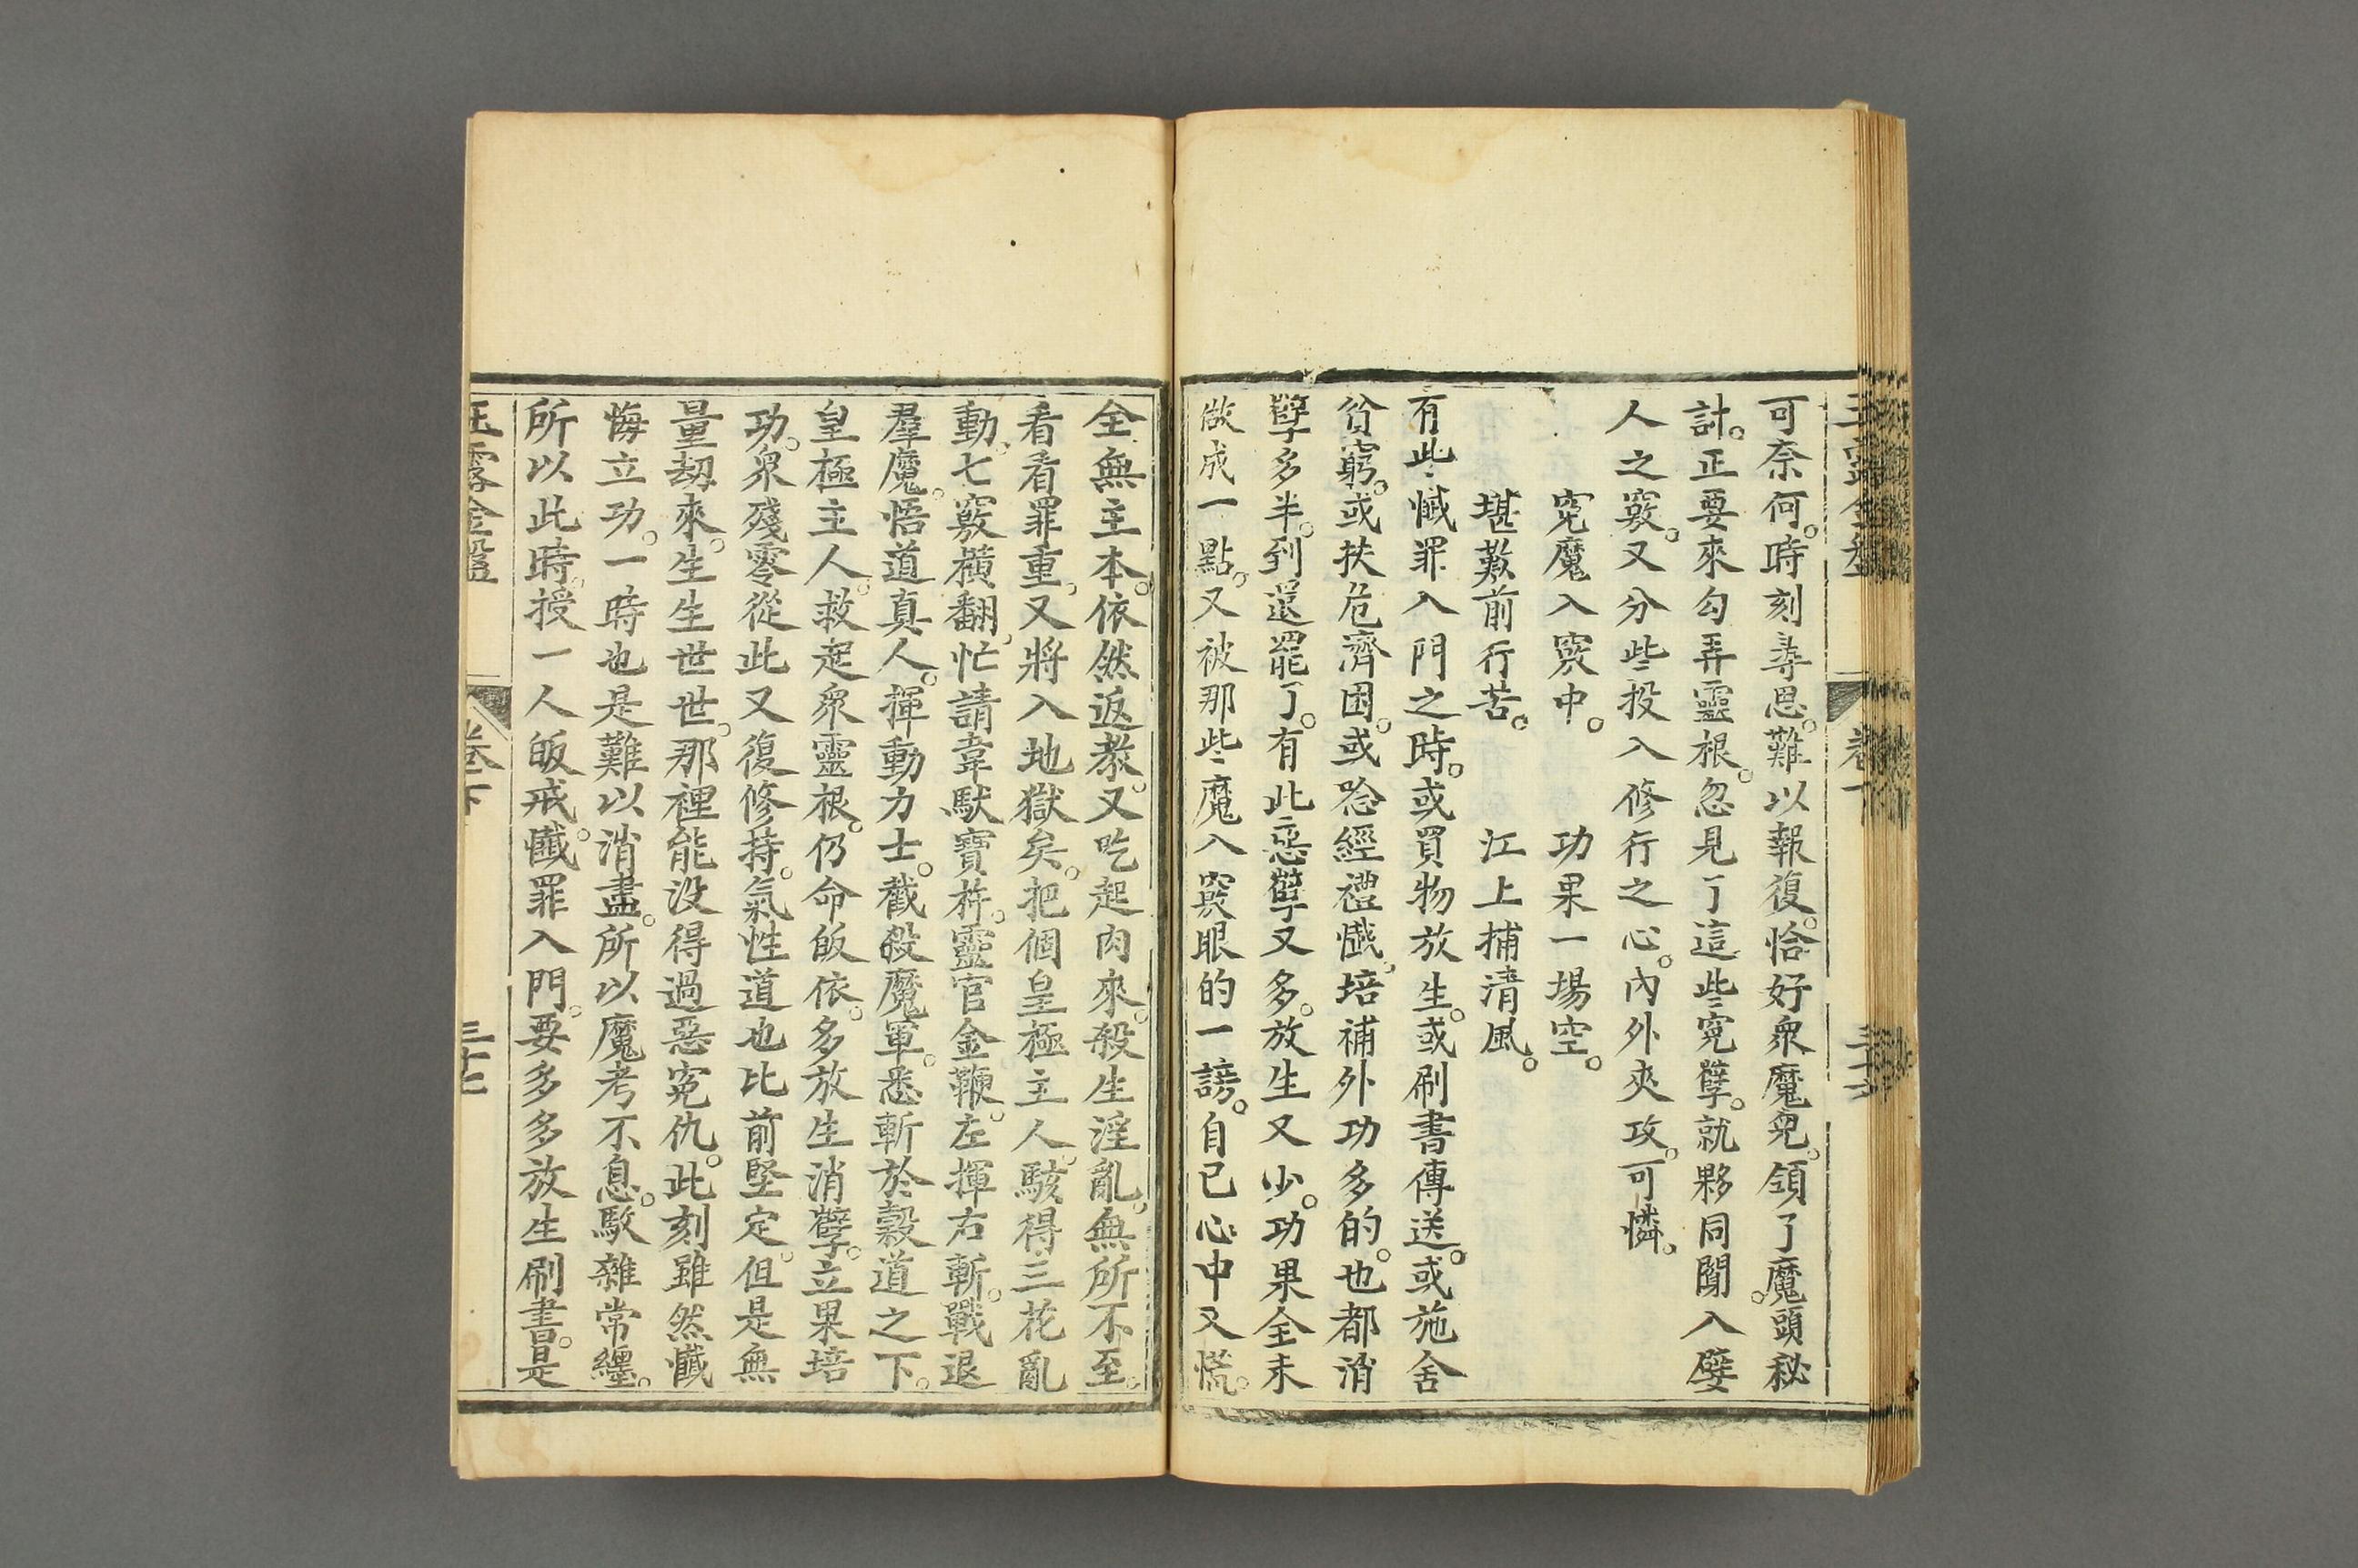 可奈何。時刻尋思。難以報復。恰好衆魔寃。領了魔頭秘
計。正要來勾弄靈根。忽見了這些寃孽。就夥同閙入嬰
人之竅。又分些投入修行之心。內外夾攻。可憐。
寃魔入竅中。功果一場空。
堪歎前行苦。江上捕清風。
有此懺罪入門之時。或買物放生。或刷書傳送。或施舍
貧窮。或扶危濟困。或唸經禮懺。培補外功多的。也都消
孽多半。到還罷了。有此惡孽又多。放生又少。功果全未
做成一點。又被那些魔入竅眼的一謗。自已心中又慌。
全無主本。依然返教。又吃起肉來。殺生淫亂。無所不至。
看看罪重。又將入地獄矣。把個皇極主人。駭得三花亂
動。七竅橫翻。忙請韋馱寶杵。靈官金鞭。左揮右斬。戰退
羣魔。悟道真人。揮動力士。截殺魔軍。悉斬於穀道之下。
皇極主人。救起衆靈根。仍命皈依。多放生消孽。立果培
功。衆殘零從此又復修持。氣性道也比前堅定。但是無
量刼來。生生世世。那裡能没得過惡寃仇。此刻雖然懺
悔立功。一時也是難以消盡。所以魔考不息。駁雜常纏。
所以此時。授一人皈戒。懺罪入門。要多多放生刷書。是
玉露金盤 卷下 三十七